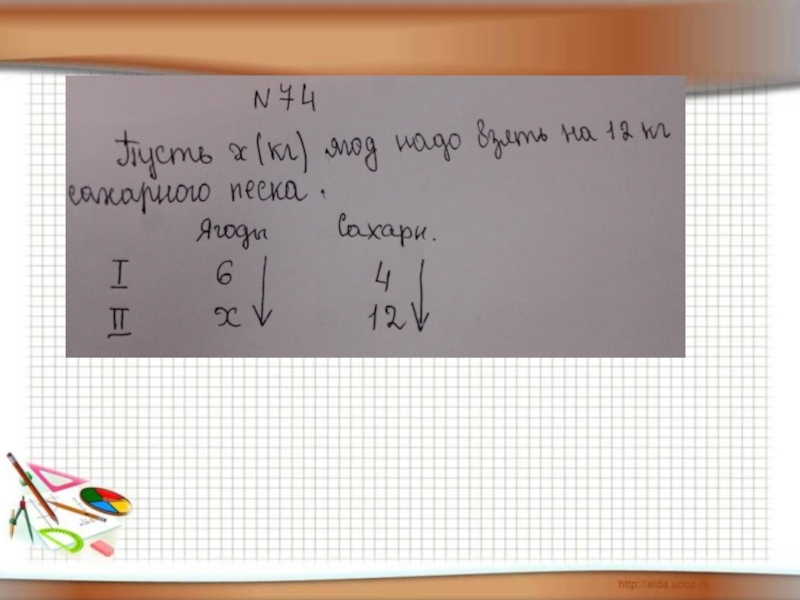 N 74
Пусть x (кг) ягод надо взять на 12 кг
сахарного песка.
Ягоды Сахарн.
I 6 4
II x 12
http://aida.ucoz.ru